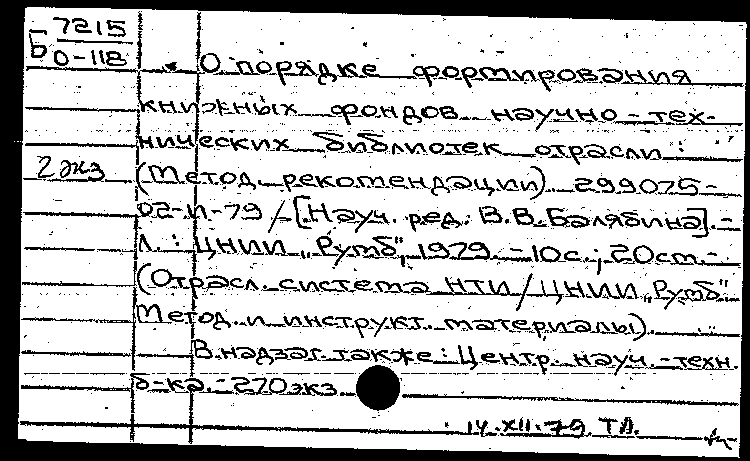 Б 7215
О-118
О порядке формирования
книжных фондов научно-тех-
нических библиотек отрасли :
2 экз
(Метод. рекомендации). 299075-
02-И-79 / [Науч. ред. В.В. Балябина]. -
Л. : ЦНИИ „Румб", 1979. - 10с.; 20см. -
(Отрасл. система НТИ / ЦНИИ „Румб"
Метод. и инструкт. материалы).
В надзаг. также : Центр. науч.-техн.
б-ка. - 270 экз.
14.XII.79. ТЛ.